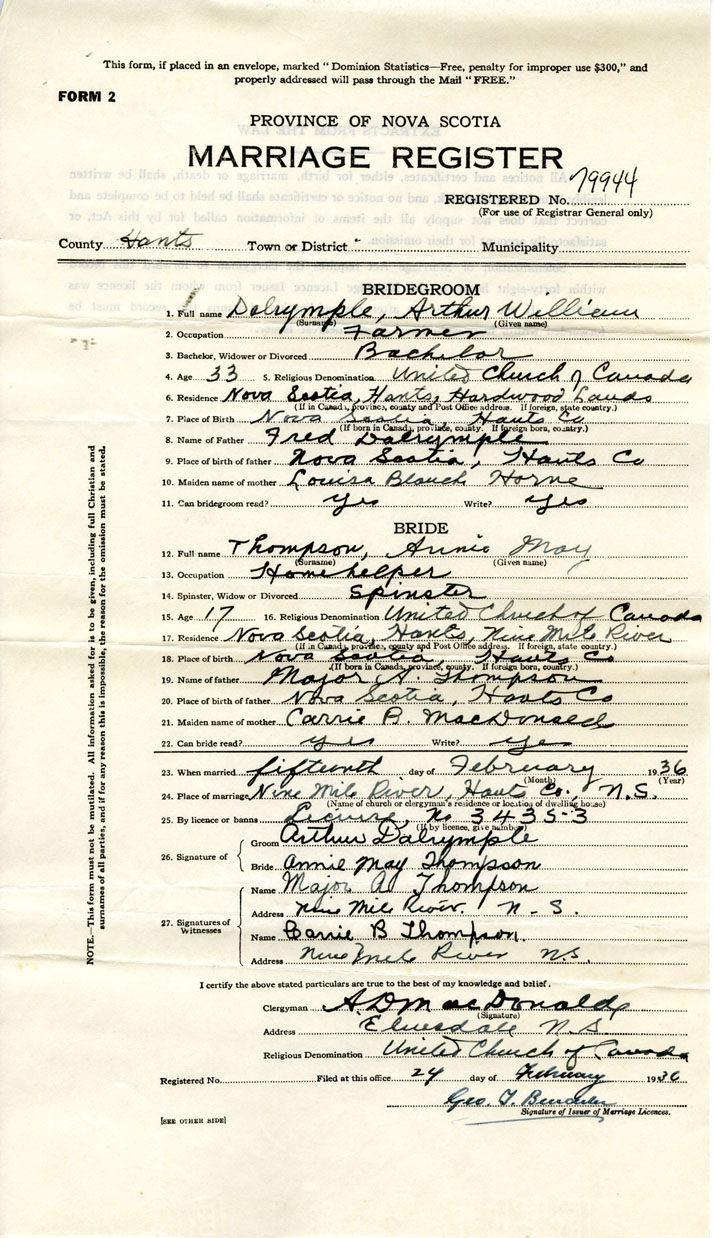 This form, if placed in an envelope, marked "Dominion Statistics—Free, penalty for improper use $300," and
properly addressed will pass through the Mail "FREE."
FORM 2
PROVINCE OF NOVA SCOTIA
MARRIAGE REGISTER
REGISTERED No. 79944
(For use of Registrar General only)
County Hants Town or District Municipality
BRIDEGROOM
1. Full name Dalrymple, Arthur William
(Surname) (Given name)
2. Occupation Farmer
3. Bachelor, Widower or Divorced Bachelor
4. Age 33 5. Religious Denomination United Church of Canada
6. Residence Nova Scotia, Hants, Hardwood Lands
(If in Canada, province, county and Post Office address. If foreign, state country.)
7. Place of Birth Nova Scotia, Hants Co
(If born in Canada, province, county. If foreign born, country.)
8. Name of Father Fred Dalrymple
9. Place of birth of father Nova Scotia, Hants Co
10. Maiden name of mother Louisa Blanch Horne
11. Can bridegroom read? yes Write? yes
BRIDE
12. Full name Thompson, Annie May
(Surname) (Given name)
13. Occupation Homehelper
14. Spinster, Widow or Divorced Spinster
15. Age 17 16. Religious Denomination United Church of Canada
17. Residence Nova Scotia, Hants, Nine Mile River
(If in Canada, province, county and Post Office address. If foreign, state country.)
18. Place of birth Nova Scotia, Hants Co
(If born in Canada, province, county. If foreign born, country.)
19. Name of father Major A. Thompson
20. Place of birth of father Nova Scotia, Hants Co
21. Maiden name of mother Carrie B. MacDonald
22. Can bride read? yes Write? yes
23. When married fifteenth day of February 1936
(Month) (Year)
24. Place of marriage Nine Mile River, Hants Co. N.S.
(Name of church or clergyman's residence or location of dwelling house)
25. By licence or banns License, No 3435-3
(If by licence, give number)
26. Signature of
Groom Arthur Dalrymple
Bride Annie May Thompson
27. Signatures of Witnesses
Name Major A Thompson
Address Nine Mile River. N-S.
Name Carrie B Thompson.
Address Nine mile River N.S.
I certify the above stated particulars are true to the best of my knowledge and belief.
Clergyman A.D. MacDonald
(Signature)
Address Elmsdale N.S.
Religious Denomination United Church of Canada
Registered No. Filed at this office 24 day of February 1936
Geo. T.
Signature of Issuer of Marriage Licences.
[SEE OTHER SIDE]
NOTE.—This form must not be mutilated. All information asked for is to be given, including full Christian and
surnames of all parties, and if for any reason this is impossible, the reason for the omission must be stated.